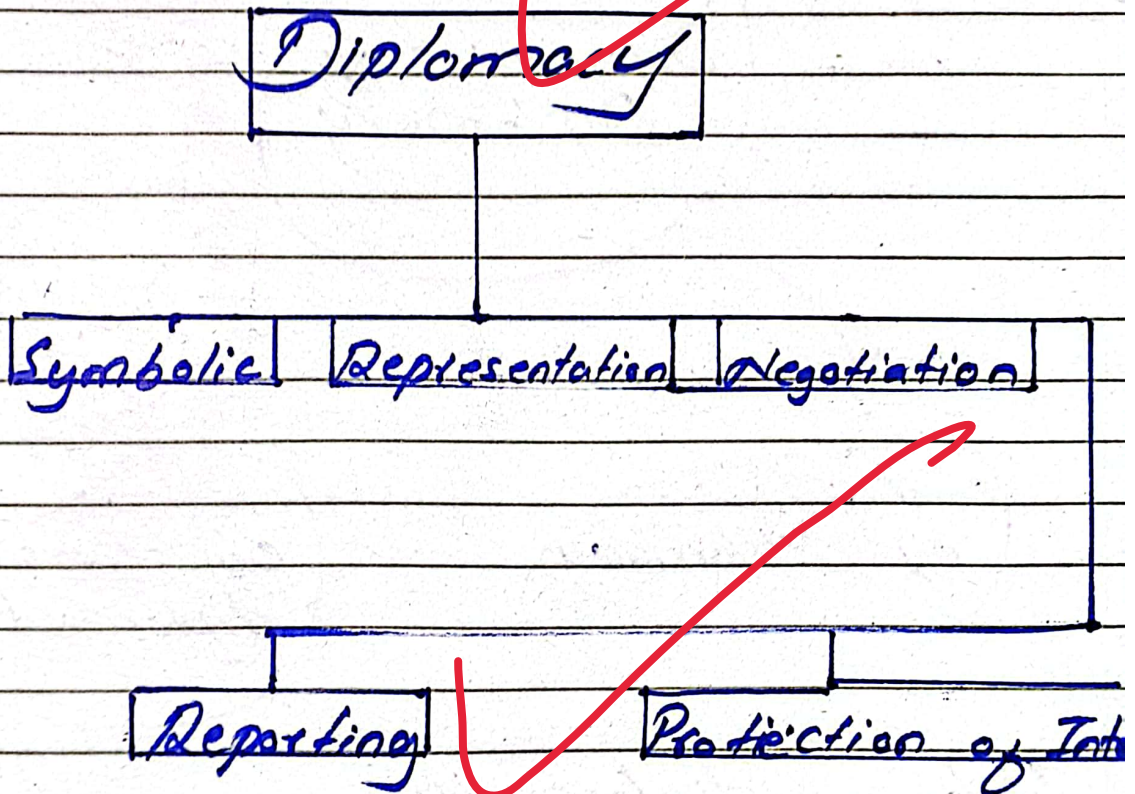 Diplomacy
Symbolic Representation Negotiation
Reporting Protection of